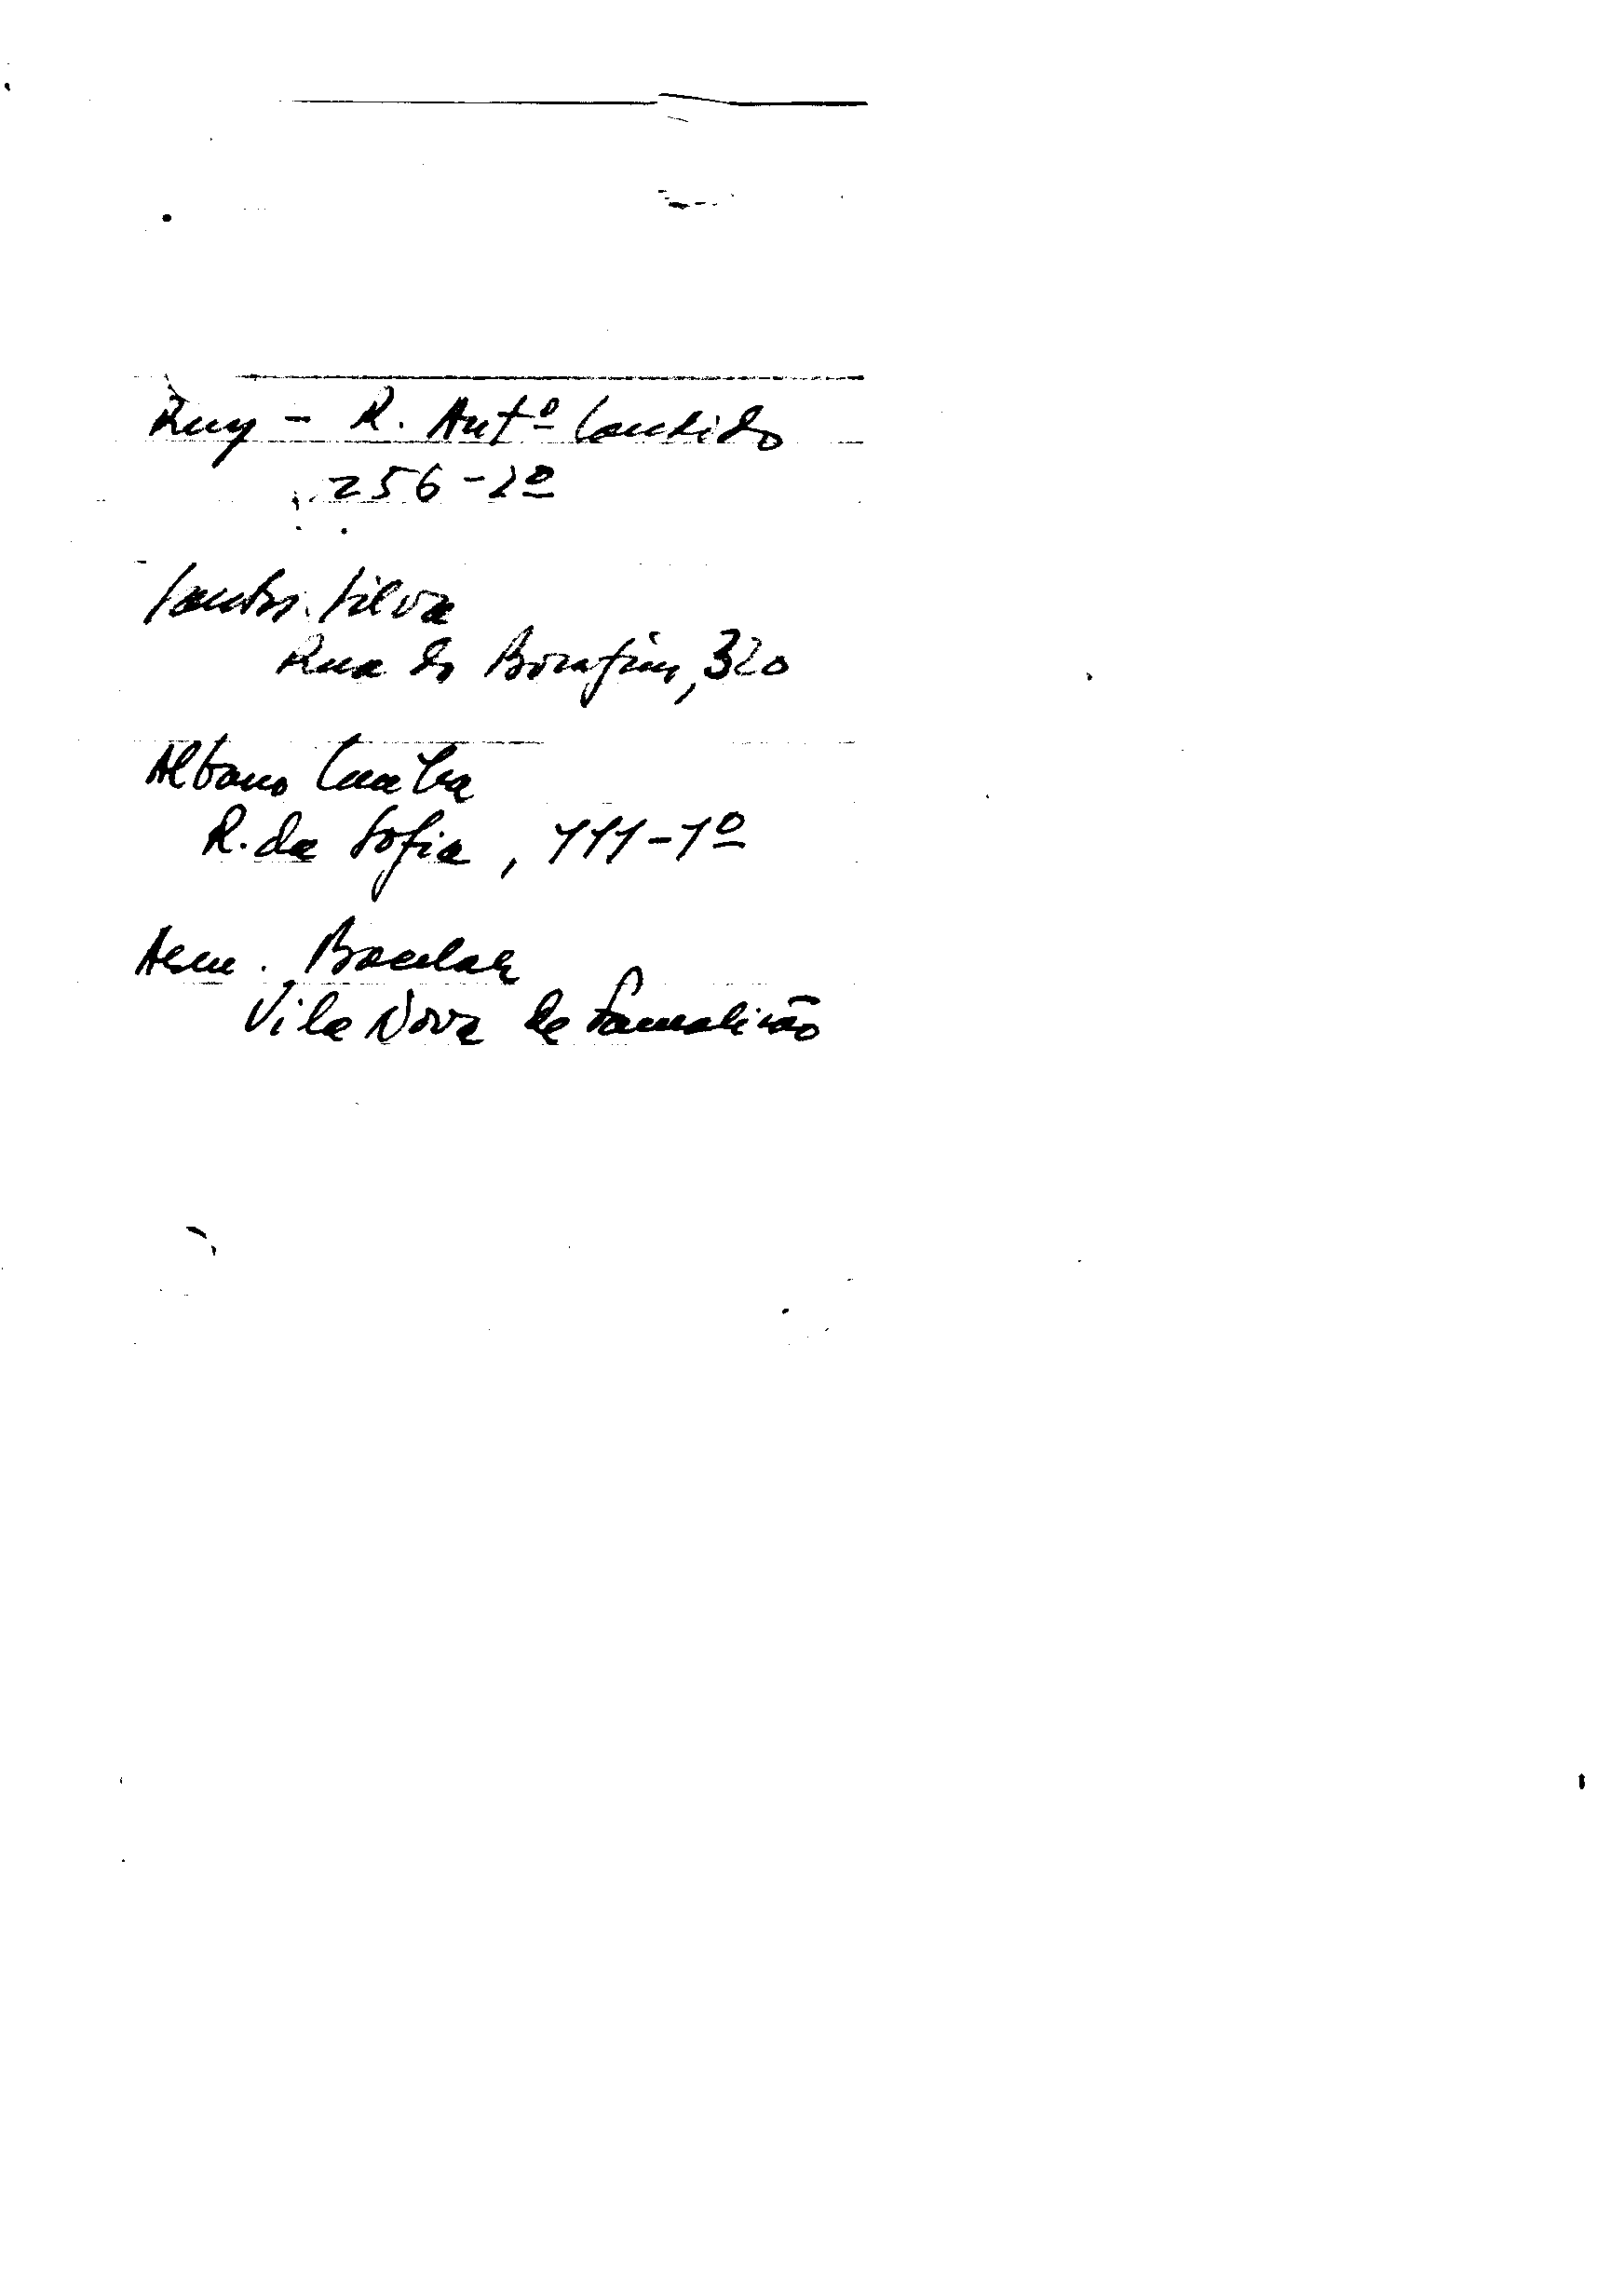 Ruy - R. Antº Candido
256-2º
Santos Silva
Rua do Bonfim, 320
Albano Cunha
R. da Sofia, 111-1º
Arm. Bacelar
Vila Nova de Famalicão